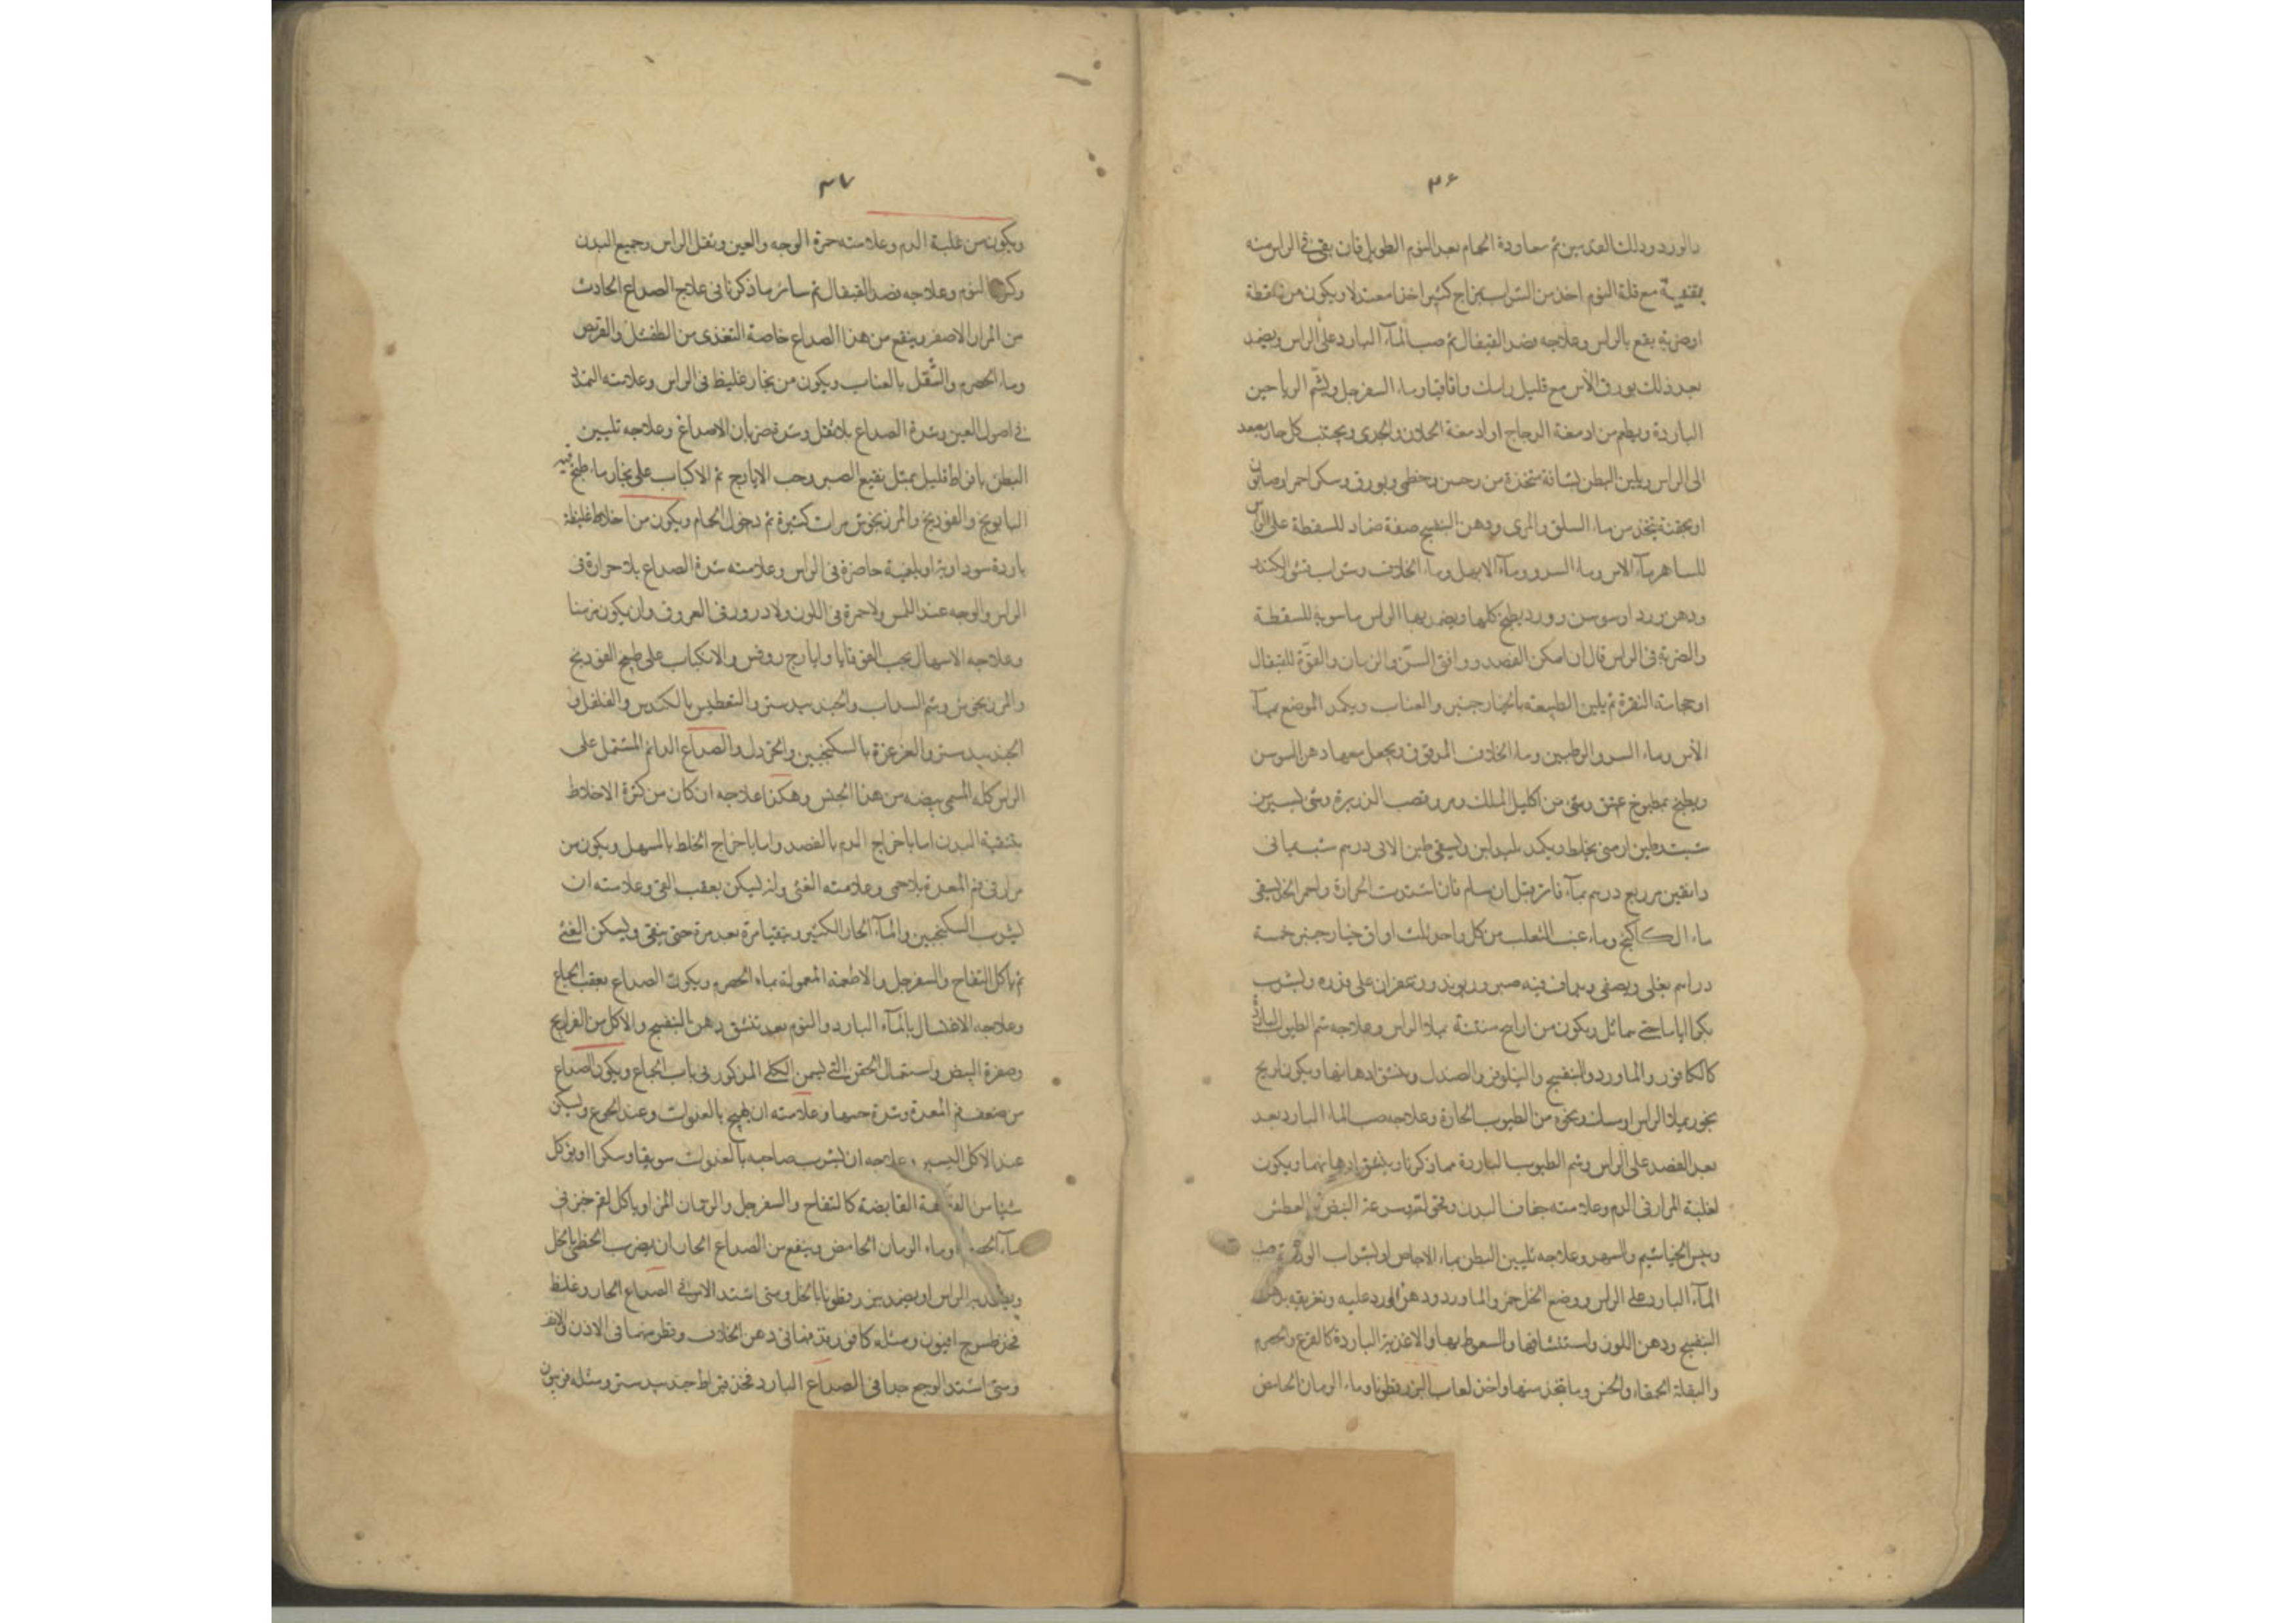 ٣٦
بالورد ودلك القدمين ثم معاودة الحمام بعد النوم الطويل فان بقى فى الراس منه
بقية مع قلة النوم اخذ من الشراب بمزاج كثير اخذا معتدلا ويكون من سقطة
او ضربة يقع بالراس وعلاجه فصد القيفال ثم صب المآء البارد على الراس ويضمد
بعد ذلك بورق الآس مع قليل رامك واقاقيا وماء السفرجل ويشم الرياحين
الباردة ويطعم من ادمغة الدجاج او ادمغة الحملان والجدى ويجتنب كل حار يصعد
الى الراس ويلين البطن بشيافة متخذة من وخطمى وبورق وسكر احمر وصابون
او بحقنة يتخذ من ماء السلق والمرى ودهن البنفسج صفة ضماد للسقطة على الراس
للساهر مآء الاس وماء السرو ومآء الابهل ومآء الخلاف وشراب الكندر
ودهن ورد او سوسن وورد يطبخ كلها ويضمد بها الراس للسقطة
والضربة فى الراس قال ان امكن الفصد ووافق السنّ والزمان والقوّة للقيفال
او حجامة النقرة ثم يلين الطبيعة بالخيارجنبر والعناب ويكمد الموضع بمآء
الآس وماء السرو والرطبين وماء الخلاف المدقوق ويجعل معها دهن السوسن
ويطبخ بمطبوخ عتيق وشئ من اكليل الملك ومرو وقصب الذريرة وشئ يسير من
شب وطين ارمنى يخلط ويكمد ويسقى طين درهم
دانقين مر ربع درهم بمآء فاتر قبل ان ينام فان اشتدت الحرارة واحمر الخد يسقى
ماء الكاكنج وماء عنب الثعلب من كل واحد ثلث اواق خيارجنبر خمسة
دراهم يغلى ويصفى ويداف فيه صبر وريوند وزعفران على قدره ويشرب
ويكون من ارايح منتنة يملا الراس وعلاجه شم الطيوب الباردة
كالكافور والماورد والبنفسج والنيلوفر والصندل وينشق ادهانها ويكون لريح
بخور يملا الراس او مسك ونحوه من الطيوب الحارة وعلاجه صب الماء البارد بعد
بعد الفصد على الراس وشم الطيوب الباردة مما ذكرنا وينشق ادهانها ويكون
لغلبة المرار فى الدم وعلامته جفاف البدن وسرعة النبض والعطش
ويبس الخياشيم والسهر وعلاجه تليين البطن بماء الاجاص او بشراب الورد ثم صب
المآء البارد على الراس ووضع الخل خمر والماورد ودهن الورد عليه وتغريقه بدهن
البنفسج ودهن اللوز واستنشاقها والسعوط بها والاغذية الباردة كالقرع والحصرم
والبقلة الحمقاء والخس وما يتخذ منها واخذ لعاب البزرقطونا وماء الرمان الحامض
٣٧
ويكون من غلبة الدم وعلامته حمرة الوجه والعين وثقل الراس وجميع البدن
وكثرة النوم وعلاجه فصد القيفال ثم سائر ما ذكرنا فى علاج الصداع الحادث
من المرار الاصفر وينفع من هذا الصداع خاصة التغذى من الطفشل والقريص
وماء الحصرم والتنقل بالعناب ويكون من بخار غليظ فى الراس وعلامته التمدد
فى اصول العين وشدة الصداع بلا ثقل وشدة ضربان الاصداغ وعلاجه تليين
البطن بافراط قليل بمثل نقيع الصبر وحب الايارج ثم الاكباب على بخار ماء طبخ فيه
البابونج والفودنج والمرزنجوش مرات كثيرة ثم دخول الحمام ويكون من اخلاط غليظة
باردة سوداوية او بلغمية حاضرة فى الراس وعلامته شدة الصداع بلا حرارة فى
الراس والوجه عند اللمس ولا حمرة فى اللون ولا درور فى العروق وان يكون مزمنا
وعلاجه الاسهال بحب القوقايا وايارج روفس والانكباب على طبيخ الفودنج
والمرزنجوش وشم السداب والجندبيدستر والتعطيس بالكندس والفلفل و
الجندبيدستر والغرغرة بالسكنجبين والخردل والصداع الدائم المشتمل على
الراس كله المسمى بيضه من هذا الجنس وهكذا علاجه ان كان من كثرة الاخلاط
بتنقية البدن اما باخراج الدم بالفصد واما باخراج الخلط بالمسهل ويكون من
مرار فى فم المعدة بلا حمى وعلامته الغثى وان يسكن بعقب القئ وعلامته ان
يشرب السكنجبين والمآء الحار الكثير ويتقيا مرة بعد مرة حتى ينقى ويسكن الغثى
ثم ياكل التفاح والسفرجل والاطعمة المعمولة بماء الحصرم ويكون الصداع بعقب الجماع
وعلاجه الاغتسال بالمآء البارد والنوم بعد تنشق دهن البنفسج والاكل من الفراريج
وصفرة البيض واستعمال الحقن التى يسمن الكلى المذكور فى باب الجماع ويكون الصداع
من ضعف فم المعدة وشدة حسها وعلامته ان يهيج بالغدوات وعند الجوع ويسكن
عند الاكل اليسير وعلاجه ان يشرب صاحبه بالغدوات سويقا وسكرا او يؤكل
شيا من القابضة كالتفاح والسفرجل والرمان المز او ياكل لقم خبز فى
مآء الحصرم او ماء الرمان الحامض وينفع من الصداع الحار ان يضرب الخطمى بالخل
ويطلى به الراس او يضمد ببزرقطونا بالخل ومتى اشتد الامر فى الصداع الحار وغلظ
فخذ طسوج افيون ومثله كافور يذيفهما فى دهن الخلاف وقطر منهما فى الاذن والانف
ومتى اشتد الوجع جدا فى الصداع البارد فخذ قيراط جندبيدستر ومثله فربيون